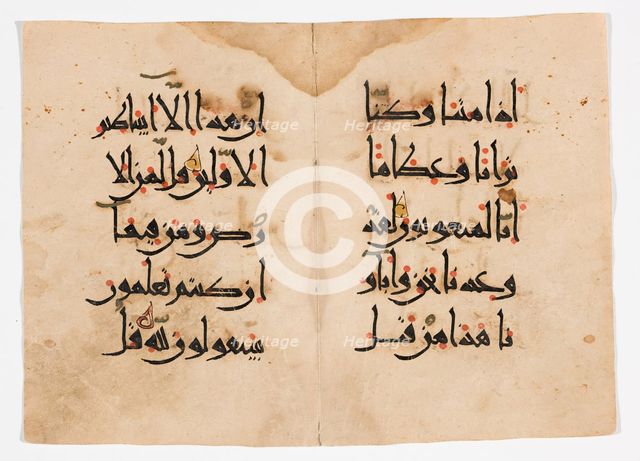 اذا متنا وكنا
ترابا وعظاما
انا لمبعوثون لقد
وعدنا نحن واباو
نا هذا من قبل
ان هذا الا اساطير
الاولين قل لمن الا
رض ومن فيها
ان كنتم تعلمون
سيقولون لله قل
© Heritage